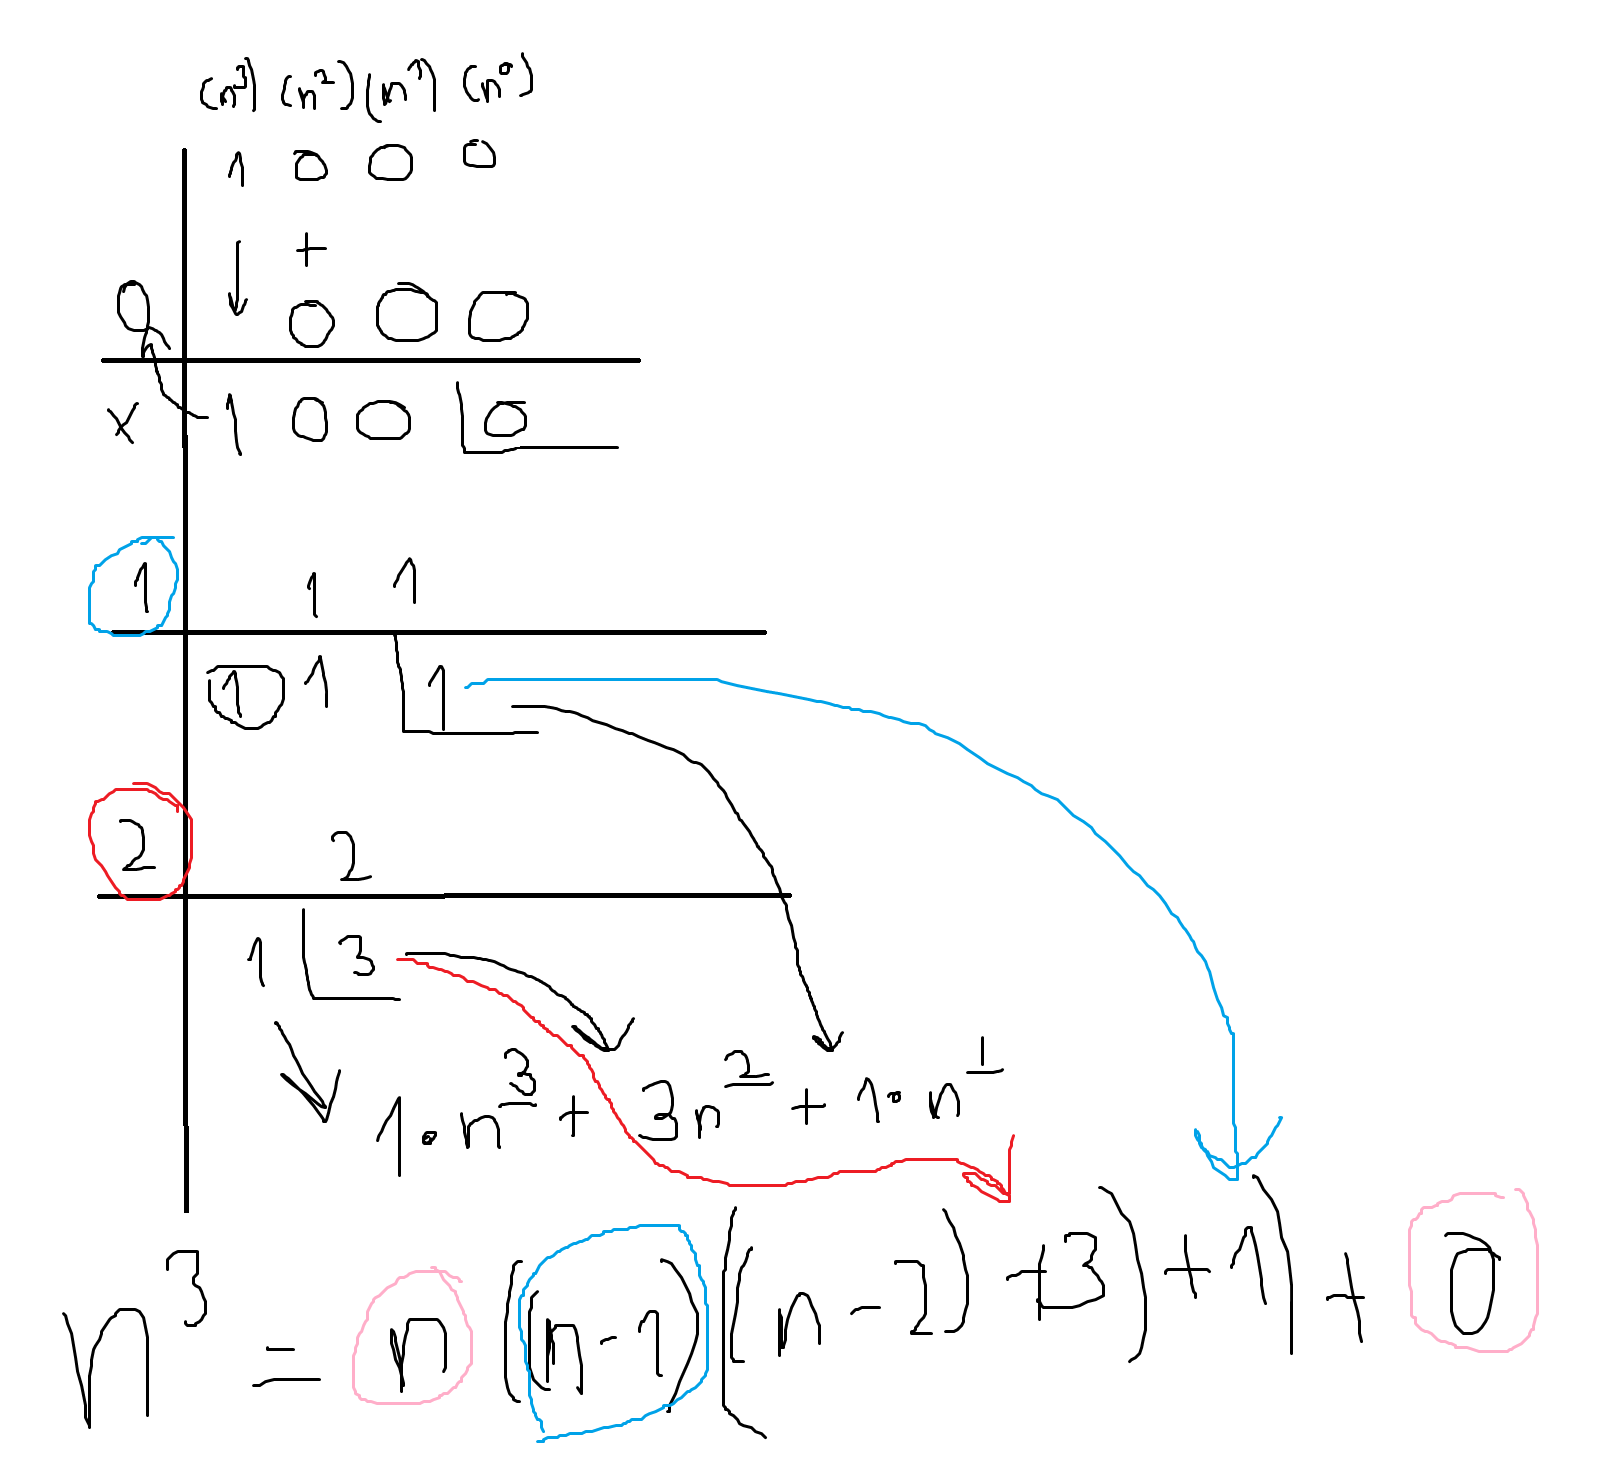 (n³) (n²) (n¹) (n⁰)
1 0 0 0
+
0 0 0 0
x 1 0 0 0
1 1 1
1 1 1
2 2
1 3
1·n³ + 3n² + 1·n¹
n³ = n((n-1)((n-2)+3)+1)+0